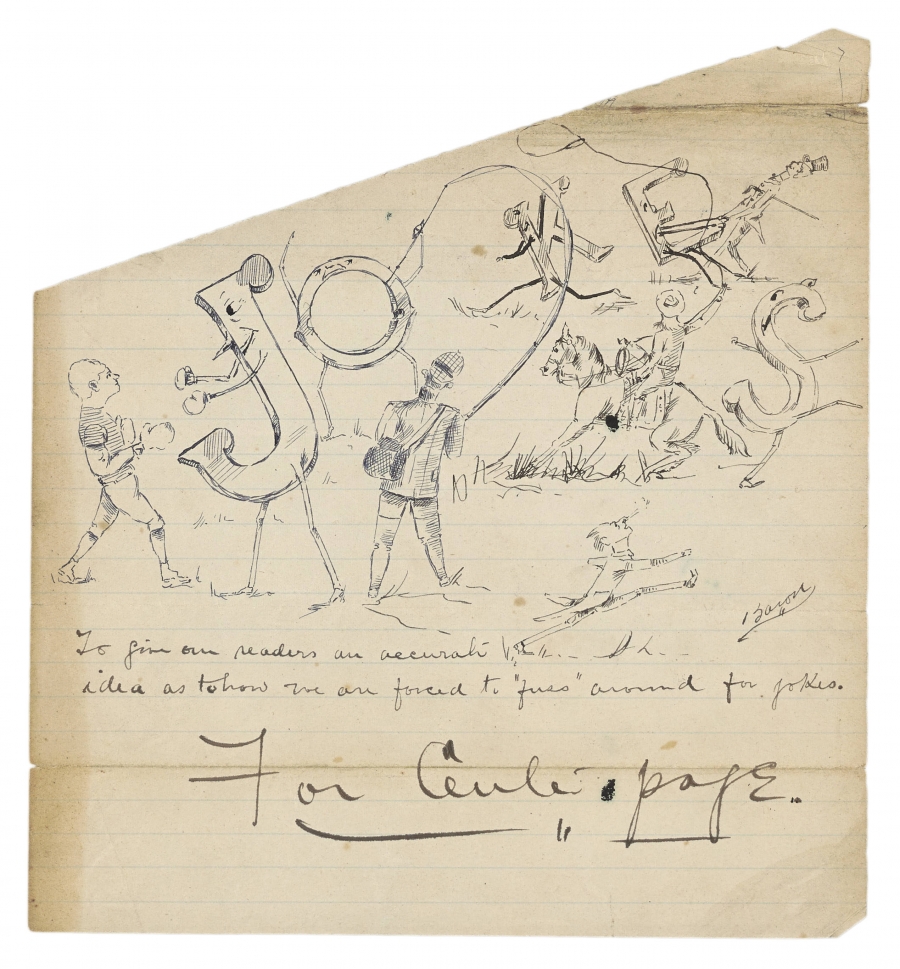 JOKES
Baron
To give our readers an accurate
idea as to how we are forced to "fuss" around for jokes.
For Center page.